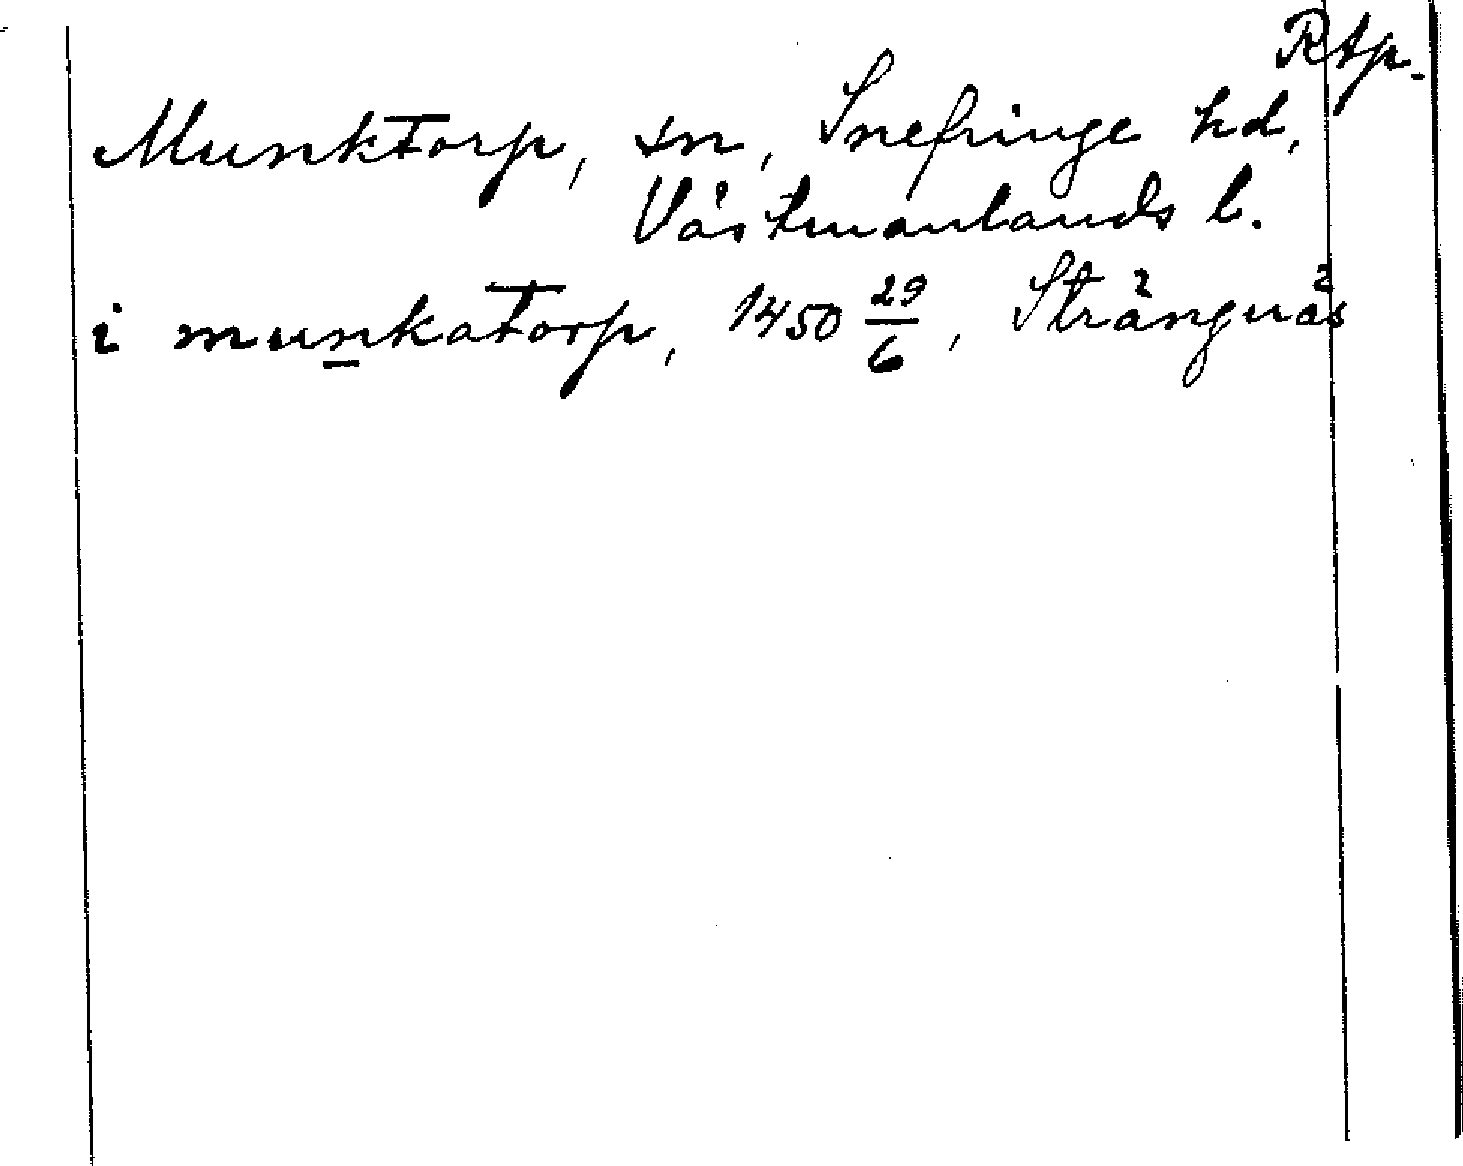 Rtp.
Munktorp, sn, Snefringe hd,
Västmanlands l.
i munkatorp, 1450 29/6, Strängnäs